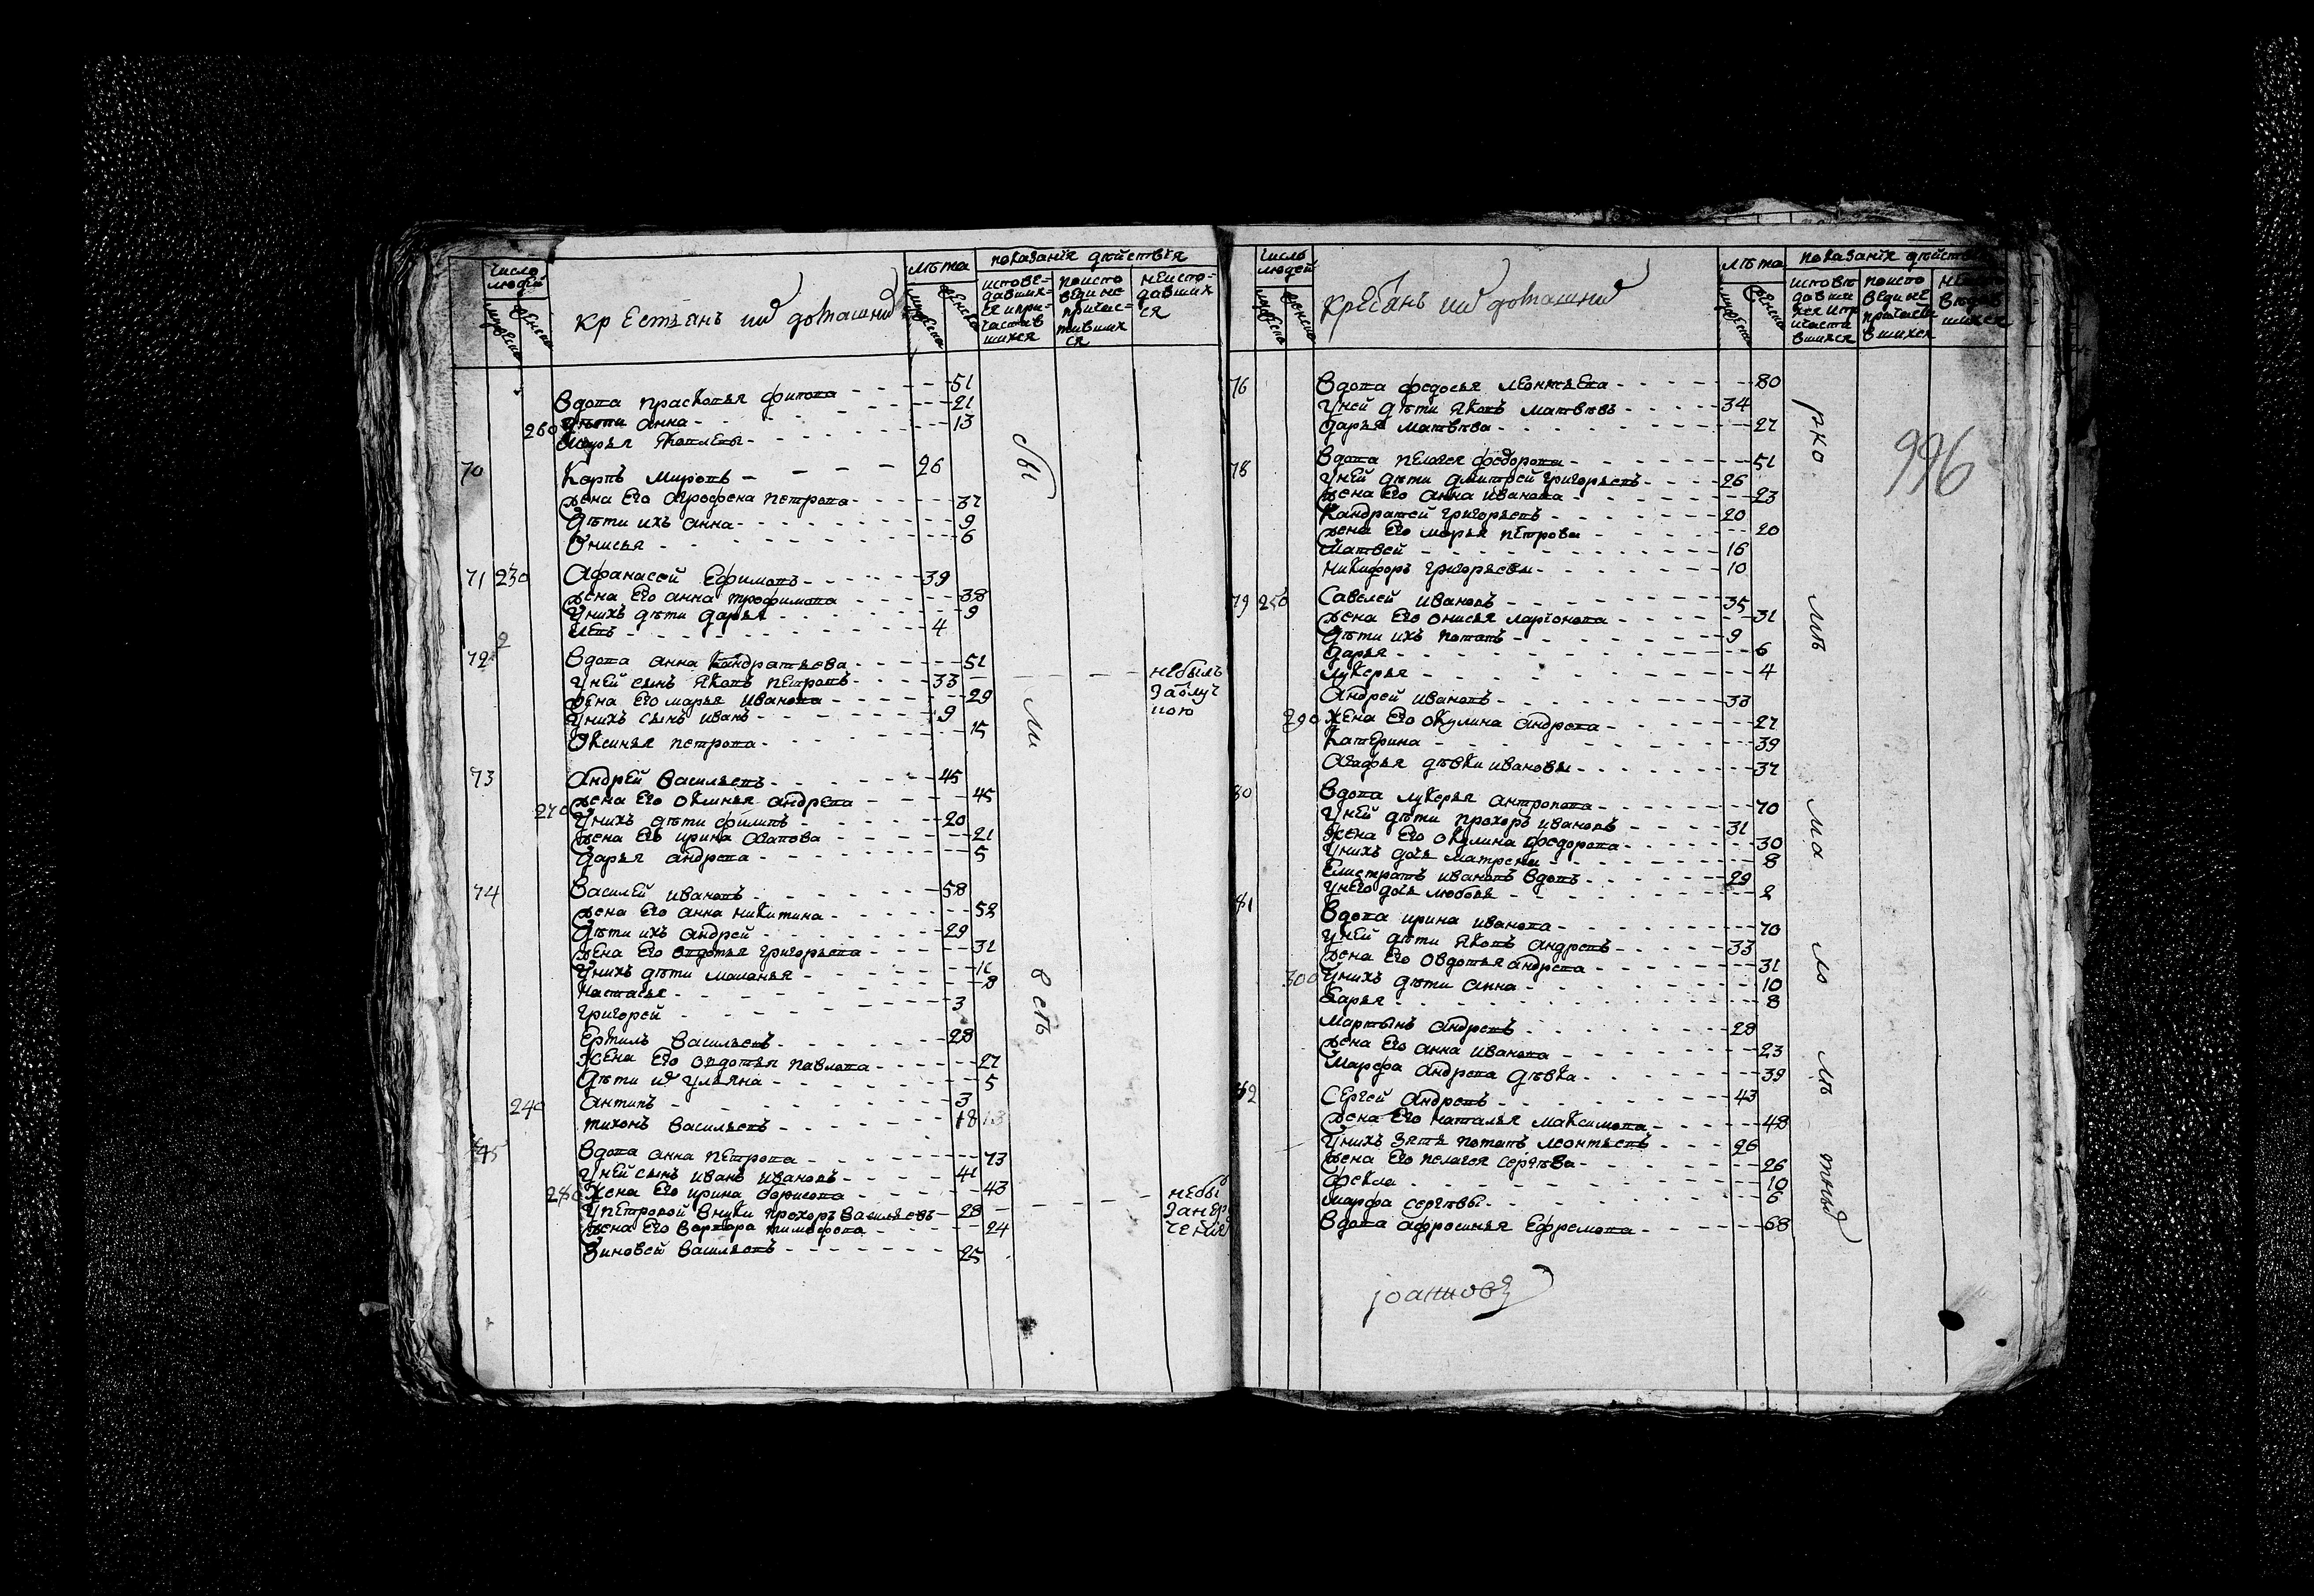 число людей
мужеска
женска
крестьянъ ихъ домашнихъ
лѣта
мужеска
женска
показанія дѣйствія
исповедавшихся и причастившихся
по исповеди не причастившихся
не исповедавшихся
Вдова прасковья - - - 51
дѣти анна - - - 21
260 Марья Яковлевы - - - 13
70 Карпъ Мироновъ - - - 26
жена Его Агрофена петрова - - - 37
дѣти ихъ анна - - - 9
Онисья - - - 6
71 230 Афанасей Ефимовъ - - - 39
жена Его анна трофимова - - - 38
Унихъ дѣти дарья - - - 9
- - - 4
72 Вдова анна Кандратьева - - - 51
Уней сынъ Яковъ петровъ - - - 33 - - - небылъ
жена Его марья Иванова - - - 29
Унихъ сынъ иванъ - - - 9
Оксинья петрова - - - 15
73 Андрей Васильевъ - - - 45
270 жена Его Оксинья андреева - - - 45
Унихъ дѣти филипъ - - - 20
жена Его ирина - - - 21
дарья андреева - - - 5
74 Василей ивановъ - - - 58
жена Его анна никитина - - - 52
дѣти ихъ андрей - - - 29
жена Его овдотья григорьева - - - 31
Унихъ дѣти маланья - - - 11
настасья - - - 8
григорей - - - 3
Ермилъ Васильевъ - - - 28
жена Его овдотья павлова - - - 27
дѣти ихъ ульяна - - - 5
240 антипъ - - - 3
тихонъ Васильевъ - - - 18
75 Вдова анна петрова - - - 73
Уней сынъ иванъ ивановъ - - - 41
280 Жена Его ирина борисова - - - 43
У петровой внуки прохоръ Васильевъ - 28 - - - небы
жена Его варвара тимофеева - - - 24
Зиновей Васильевъ - - - 25
бы
ли
всѣ
число людей
мужеска
женска
крестьянъ ихъ домашнихъ
лѣта
показанія дѣйствія
996
76 Вдова федосья леонтьева - - - 80
Уней дѣти Яковъ матвѣевъ - - - 34
дарья матвѣева - - - 27
78 Вдова пелагея федорова - - - 51
Уней дѣти дмитрей григорьевъ - - - 26
жена Его анна иванова - - - 23
Кандратей григорьевъ - - - 20
жена Его марья петрова - - - 20
Матвей - - - 16
никифоръ григорьевы - - - 10
79 250 Савелей ивановъ - - - 35
жена Его онисья ларіонова - - - 31
дѣти ихъ потапъ - - - 9
дарья - - - 6
лукерья - - - 4
Андрей ивановъ - - - 33
290 жена Его окулина андреева - - - 27
Катерина - - - 39
Агафья дѣвки ивановы - - - 37
80 Вдова лукерья антропова - - - 70
Уней дѣти прохоръ ивановъ - - - 31
жена Его окулина федорова - - - 30
Унихъ дочь матрена - - - 8
Елистратъ ивановъ вдовъ - - - 29
Унего дочь любовь - - - 2
81 Вдова ирина иванова - - - 70
Уней дѣти Яковъ андреевъ - - - 33
жена Его овдотья андреева - - - 31
300 Унихъ дѣти анна - - - 10
дарья - - - 8
Мартынъ андреевъ - - - 28
жена Его анна иванова - - - 23
Марфа андреева дѣвка - - - 39
82 Сергей андреевъ - - - 43
жена Его наталья максимова - - - 48
Унихъ зять потапъ леонтьевъ - - - 26
жена Его пелагея сергѣева - - - 26
фекла - - - 10
Марфа сергѣевы - - - 6
Вдова афросинья Ефремова - - - 68
роме
мало
лѣтныхъ